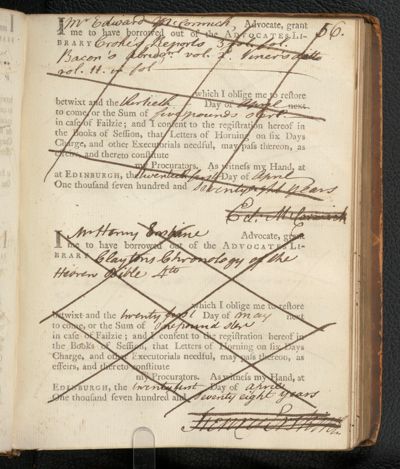 56.
I Mr Edward McCormick, Advocate, grant
me to have borrowed out of the ADVOCATES LI-
BRARY Croke's Reports, 3 vol. fol.
Bacon's Abridgmt vol. 2. Viner's
vol. 11. in fol
which I oblige me to restore
betwixt and the thirtieth Day of April next
to come, or the Sum of five pounds sterl.
in case of Failzie; and I consent to the registration hereof in
the Books of Session, that Letters of Horning on six Days
Charge, and other Executorials needful, may pass thereon, as
effeirs, and thereto constitute
my Procurators. As witness my Hand, at
at EDINBURGH, the twentieth Day of April
One thousand seven hundred and seventy eight years
Ed: McCormick
I Mr Henry Erskine Advocate, grant
me to have borrowed out of the ADVOCATES LI-
BRARY Clayton's Chronology of the
Hebrew Bible 4to
which I oblige me to restore
betwixt and the twenty first Day of may next
to come, or the Sum of One pound ster
in case of Failzie; and I consent to the registration hereof in
the Books of Session, that Letters of Horning on six Days
Charge, and other Executorials needful, may pass thereon, as
effeirs, and thereto constitute
my Procurators. As witness my Hand, at
EDINBURGH, the twenty first Day of april
One thousand seven hundred and seventy eight years
Henry Erskine